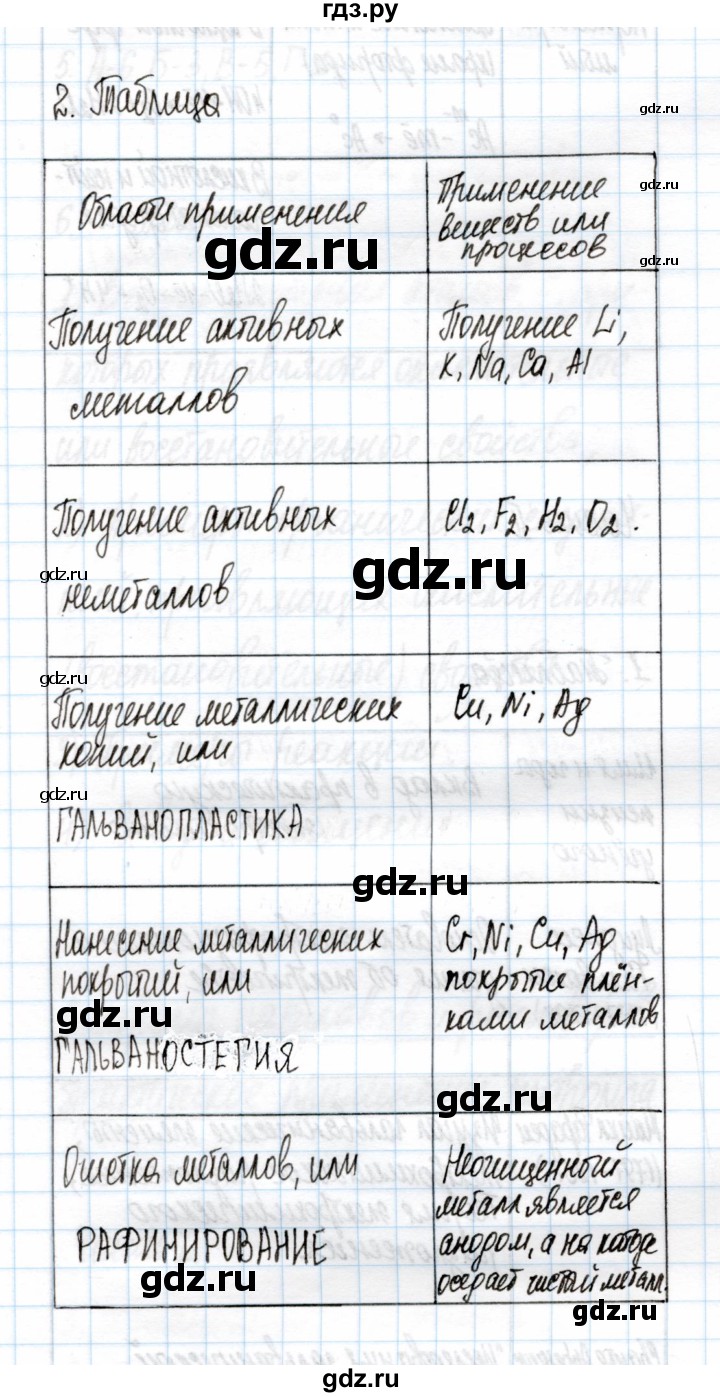 гдз.ру
gdz.ru
2. Таблица
gdz.ru
Области применения
Применение
веществ или
процессов
gdz.ru
gdz.ru
gdz.ru
Получение активных
металлов
Получение Li,
K, Na, Ca, Al
gdz.ru
Получение активных
неметаллов
Cl2, F2, H2, O2.
gdz.ru
gdz.ru
gdz.ru
gdz.ru
Получение металлических
копий, или
ГАЛЬВАНОПЛАСТИКА
Cu, Ni, Ag
gdz.ru
gdz.ru
Нанесение металлических
покрытий, или
ГАЛЬВАНОСТЕГИЯ
Cr, Ni, Cu, Ag
покрытие плён-
ками металлов
gdz.ru
gdz.ru
Очистка металлов, или
РАФИНИРОВАНИЕ
Неочищенный
металл является
анодом, а на катоде
оседает чистый металл.
gdz.ru
gdz.ru